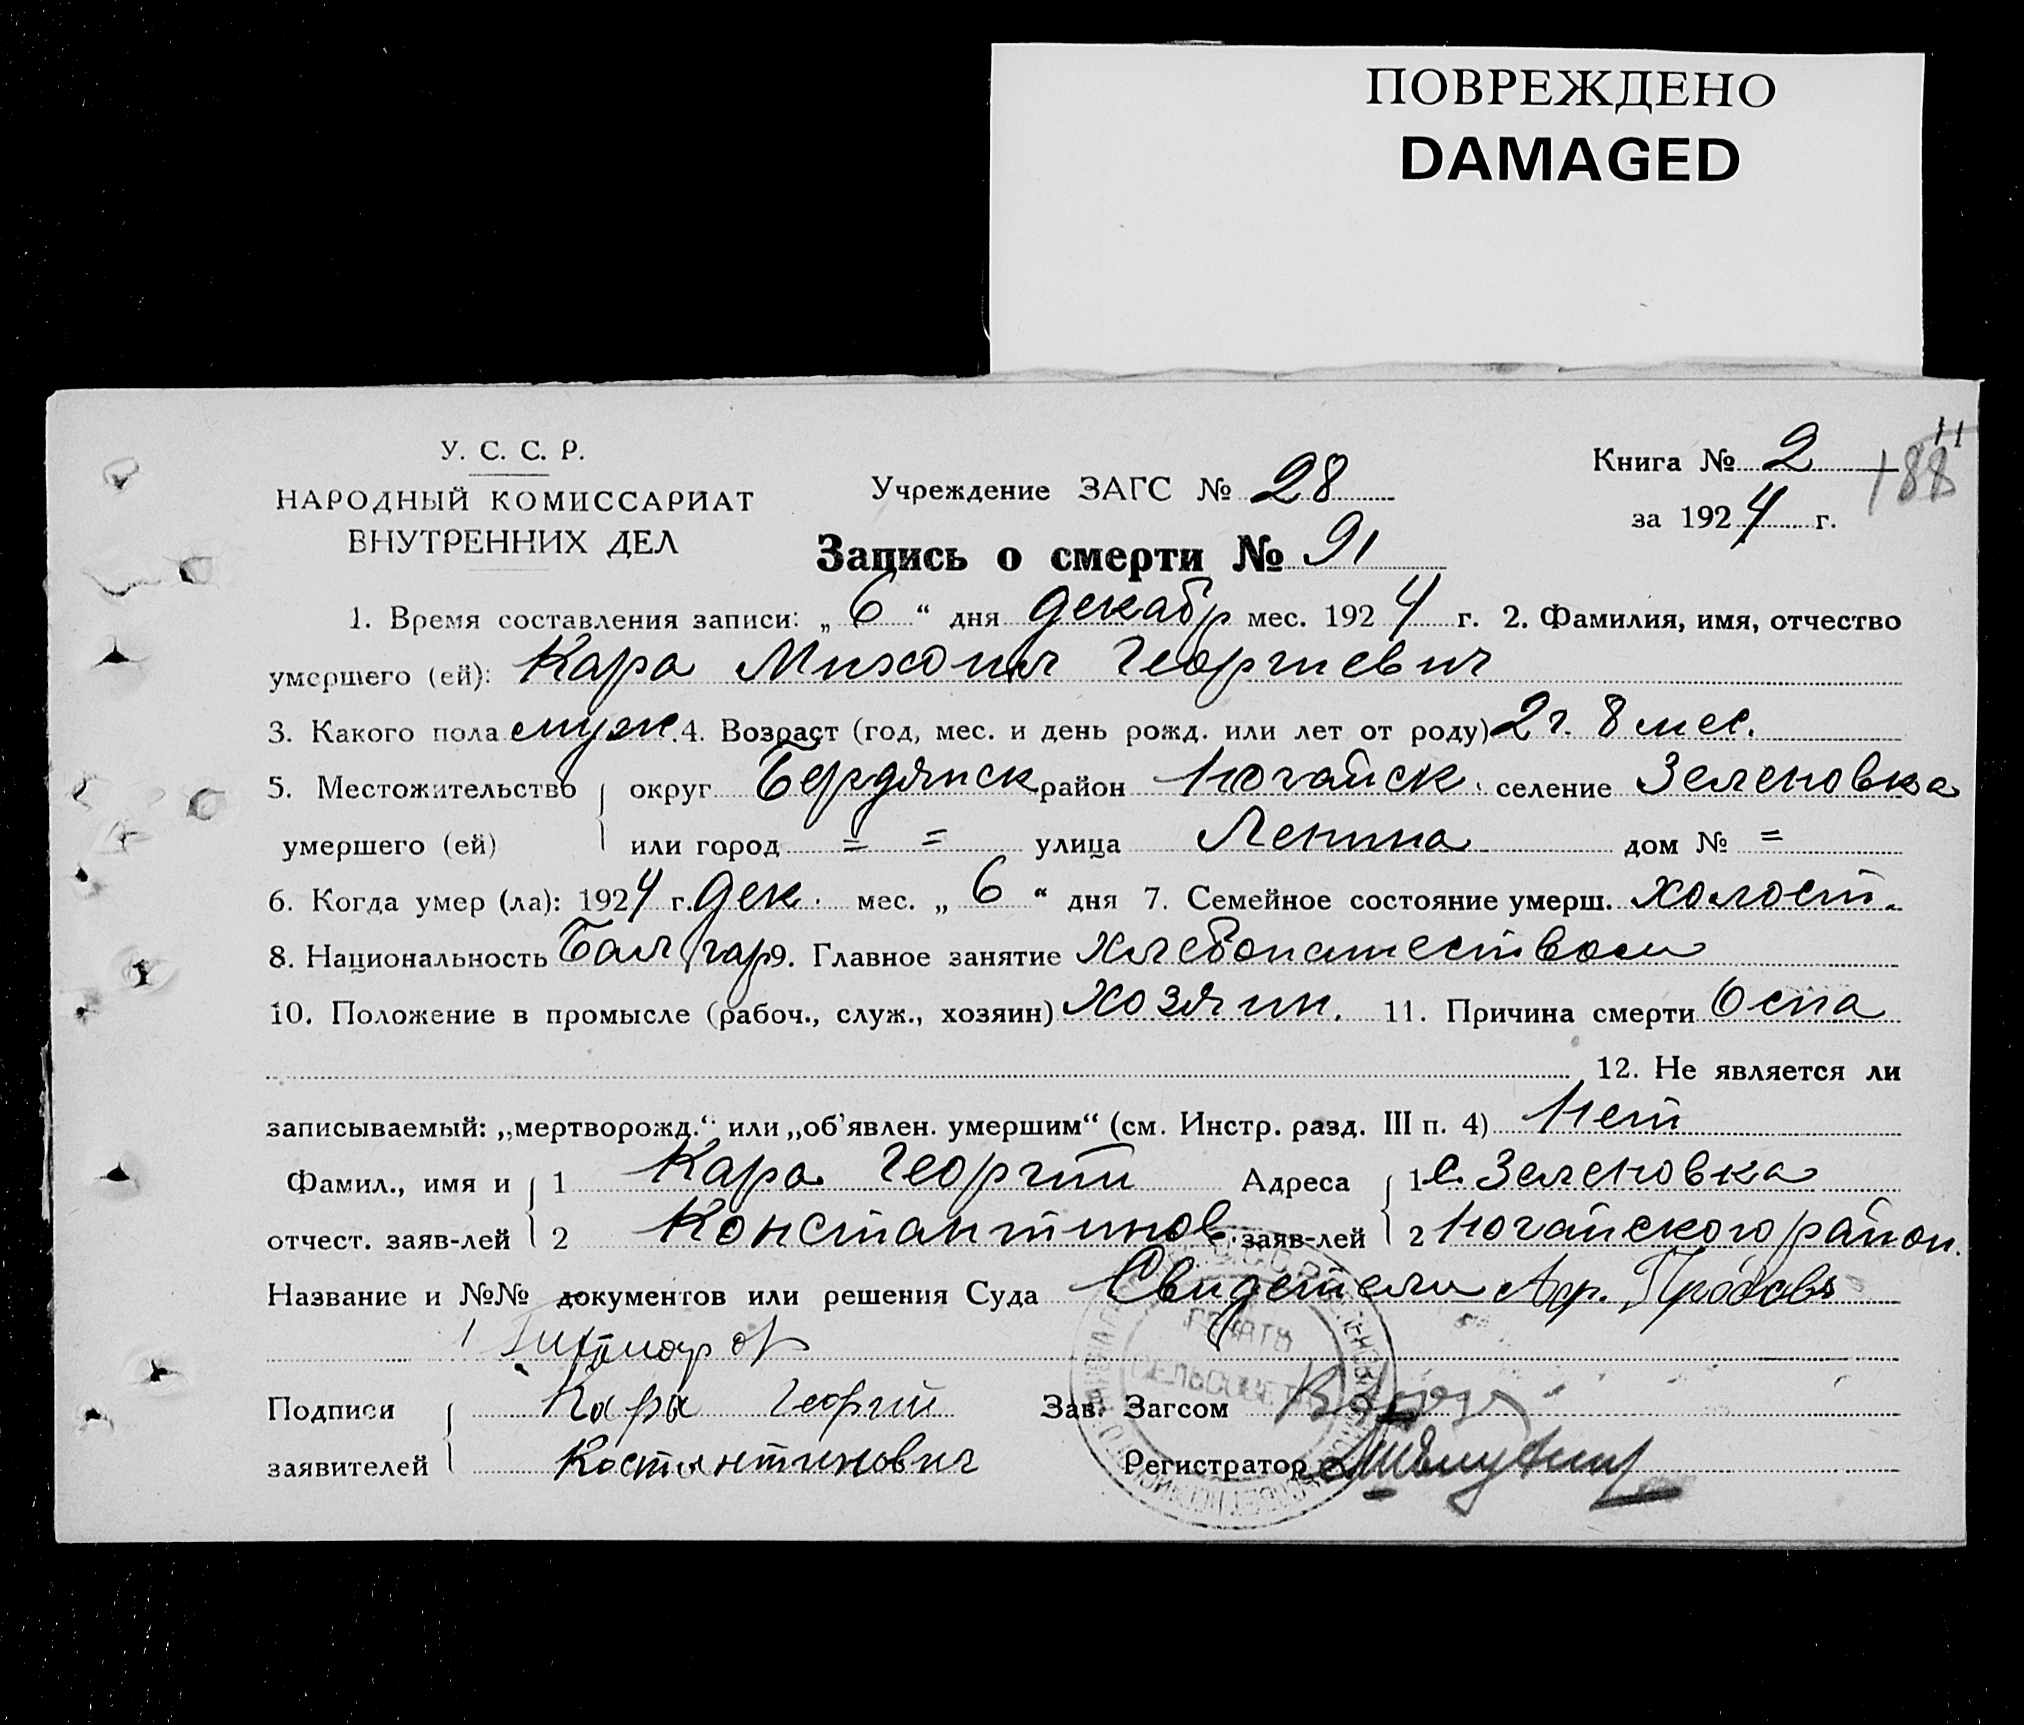 ПОВРЕЖДЕНО
DAMAGED
У. С. С. Р.
НАРОДНЫЙ КОМИССАРИАТ
ВНУТРЕННИХ ДЕЛ
Учреждение ЗАГС № 28
Книга № 2
11
188
за 1924 г.
Запись о смерти № 91
1. Время составления записи: „ 6 “ дня декабр мес. 1924 г. 2. Фамилия, имя, отчество
умершего (ей): Кара Михаил Георгиевич
3. Какого пола муж. 4. Возраст (год, мес. и день рожд. или лет от роду) 2 г. 8 мес.
5. Местожительство округ Бердянск район Ногайск. селение Зеленовка
умершего (ей) или город = = улица Ленина дом № =
6. Когда умер (ла): 1924 г. Дек. мес. „ 6 “ дня 7. Семейное состояние умерш. холост.
8. Национальность Балгар 9. Главное занятие хлебопашеством
10. Положение в промысле (рабоч., служ., хозяин) Хозяин. 11. Причина смерти Оспа
12. Не является ли
записываемый: „мертворожд.“ или „об’явлен. умершим“ (см. Инстр. разд. III п. 4) Нет
Фамил., имя и 1 Кара Георгий Адреса 1 с. Зеленовка
отчест. заяв-лей 2 Константинов. заяв-лей 2 Ногайского район.
Название и №№ документов или решения Суда Свидетели
Подписи Кара Георгий Зав. Загсом
заявителей Костянтинович Регистратор